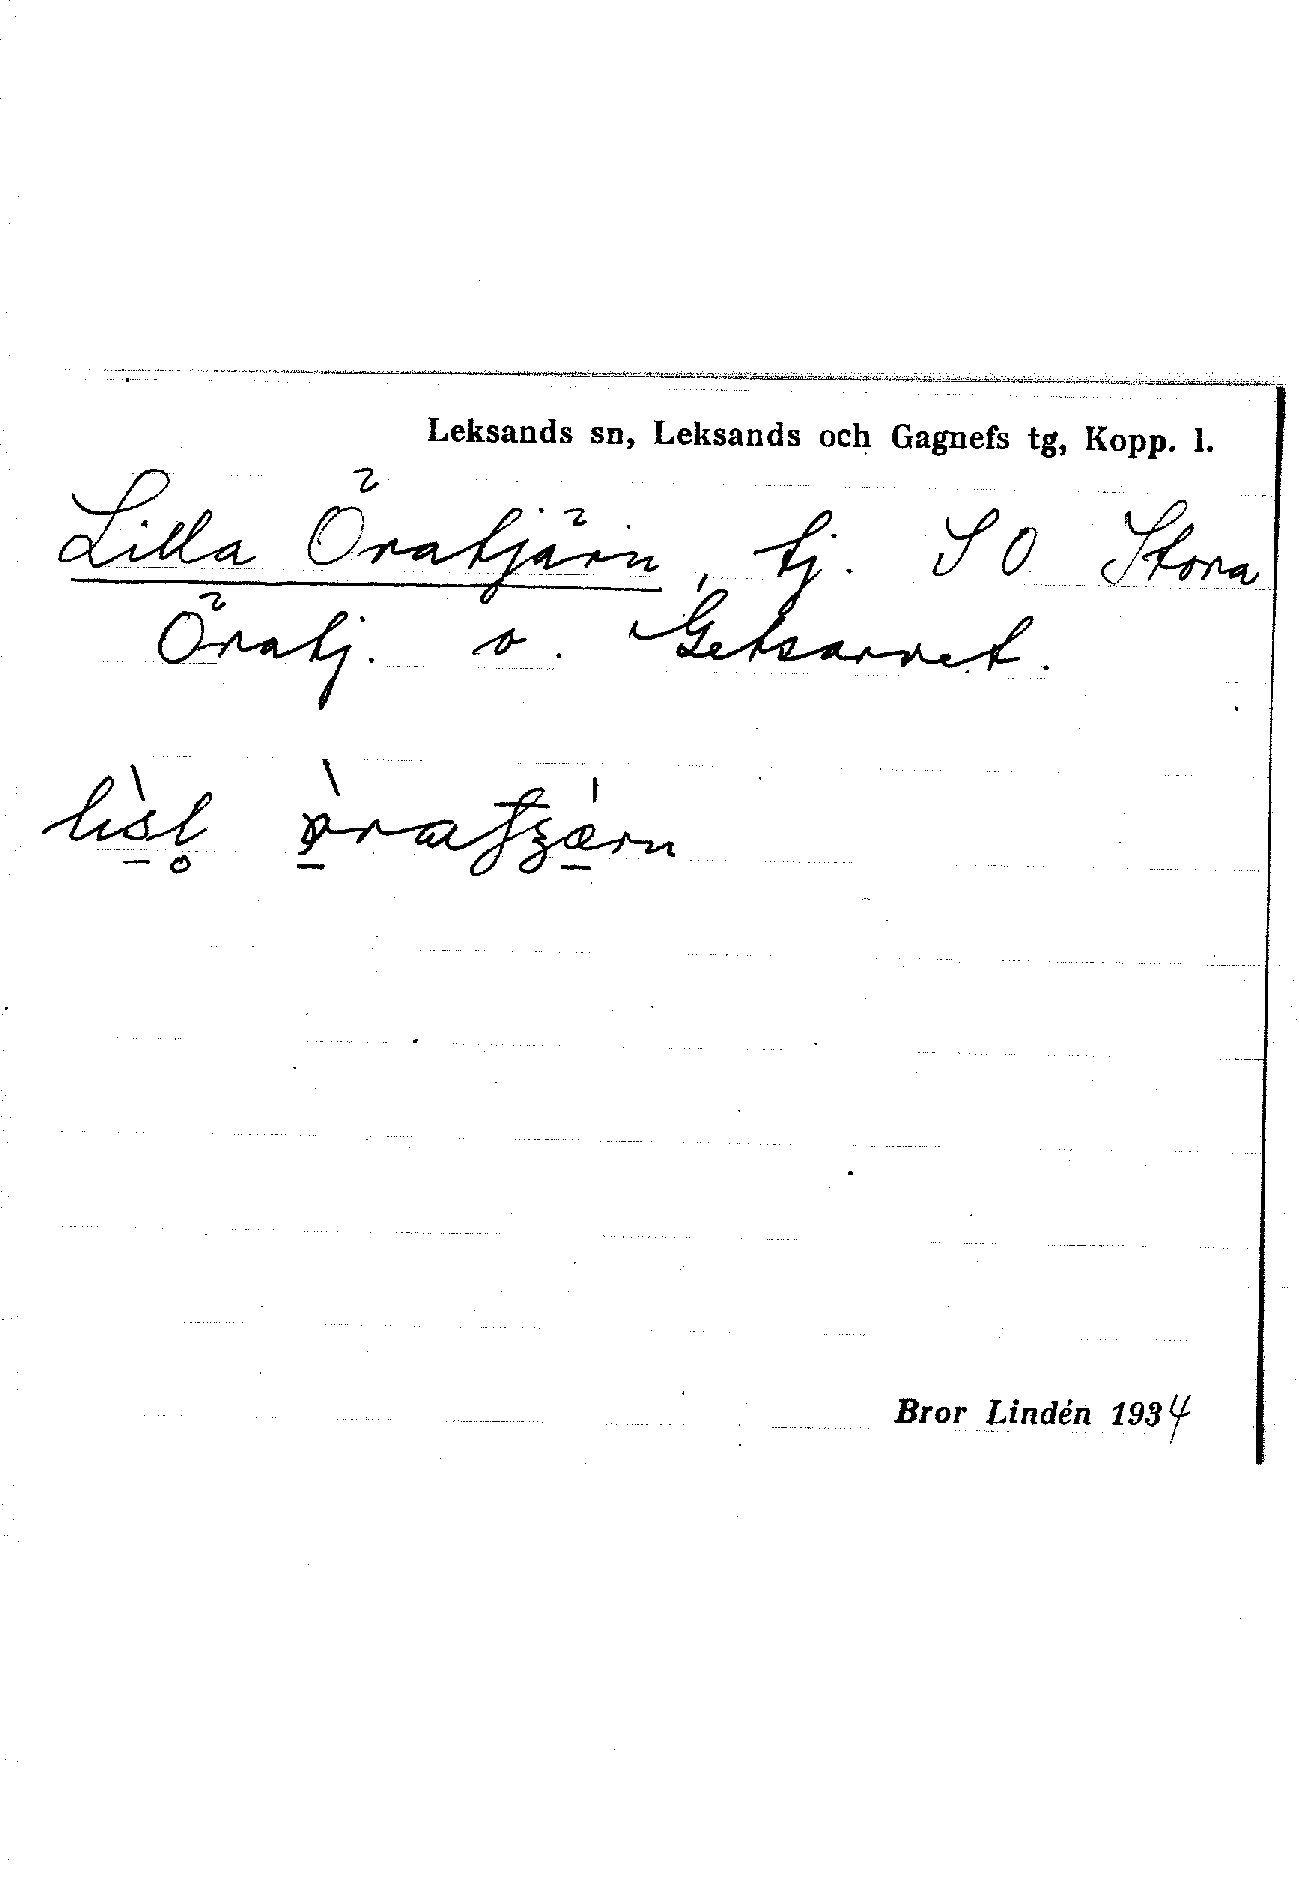 Leksands sn, Leksands och Gagnefs tg, Kopp. l.
Lilla Öratjärn, tj. SO Stora
Öratj. o. Getsarvet.
Bror Lindén 1934